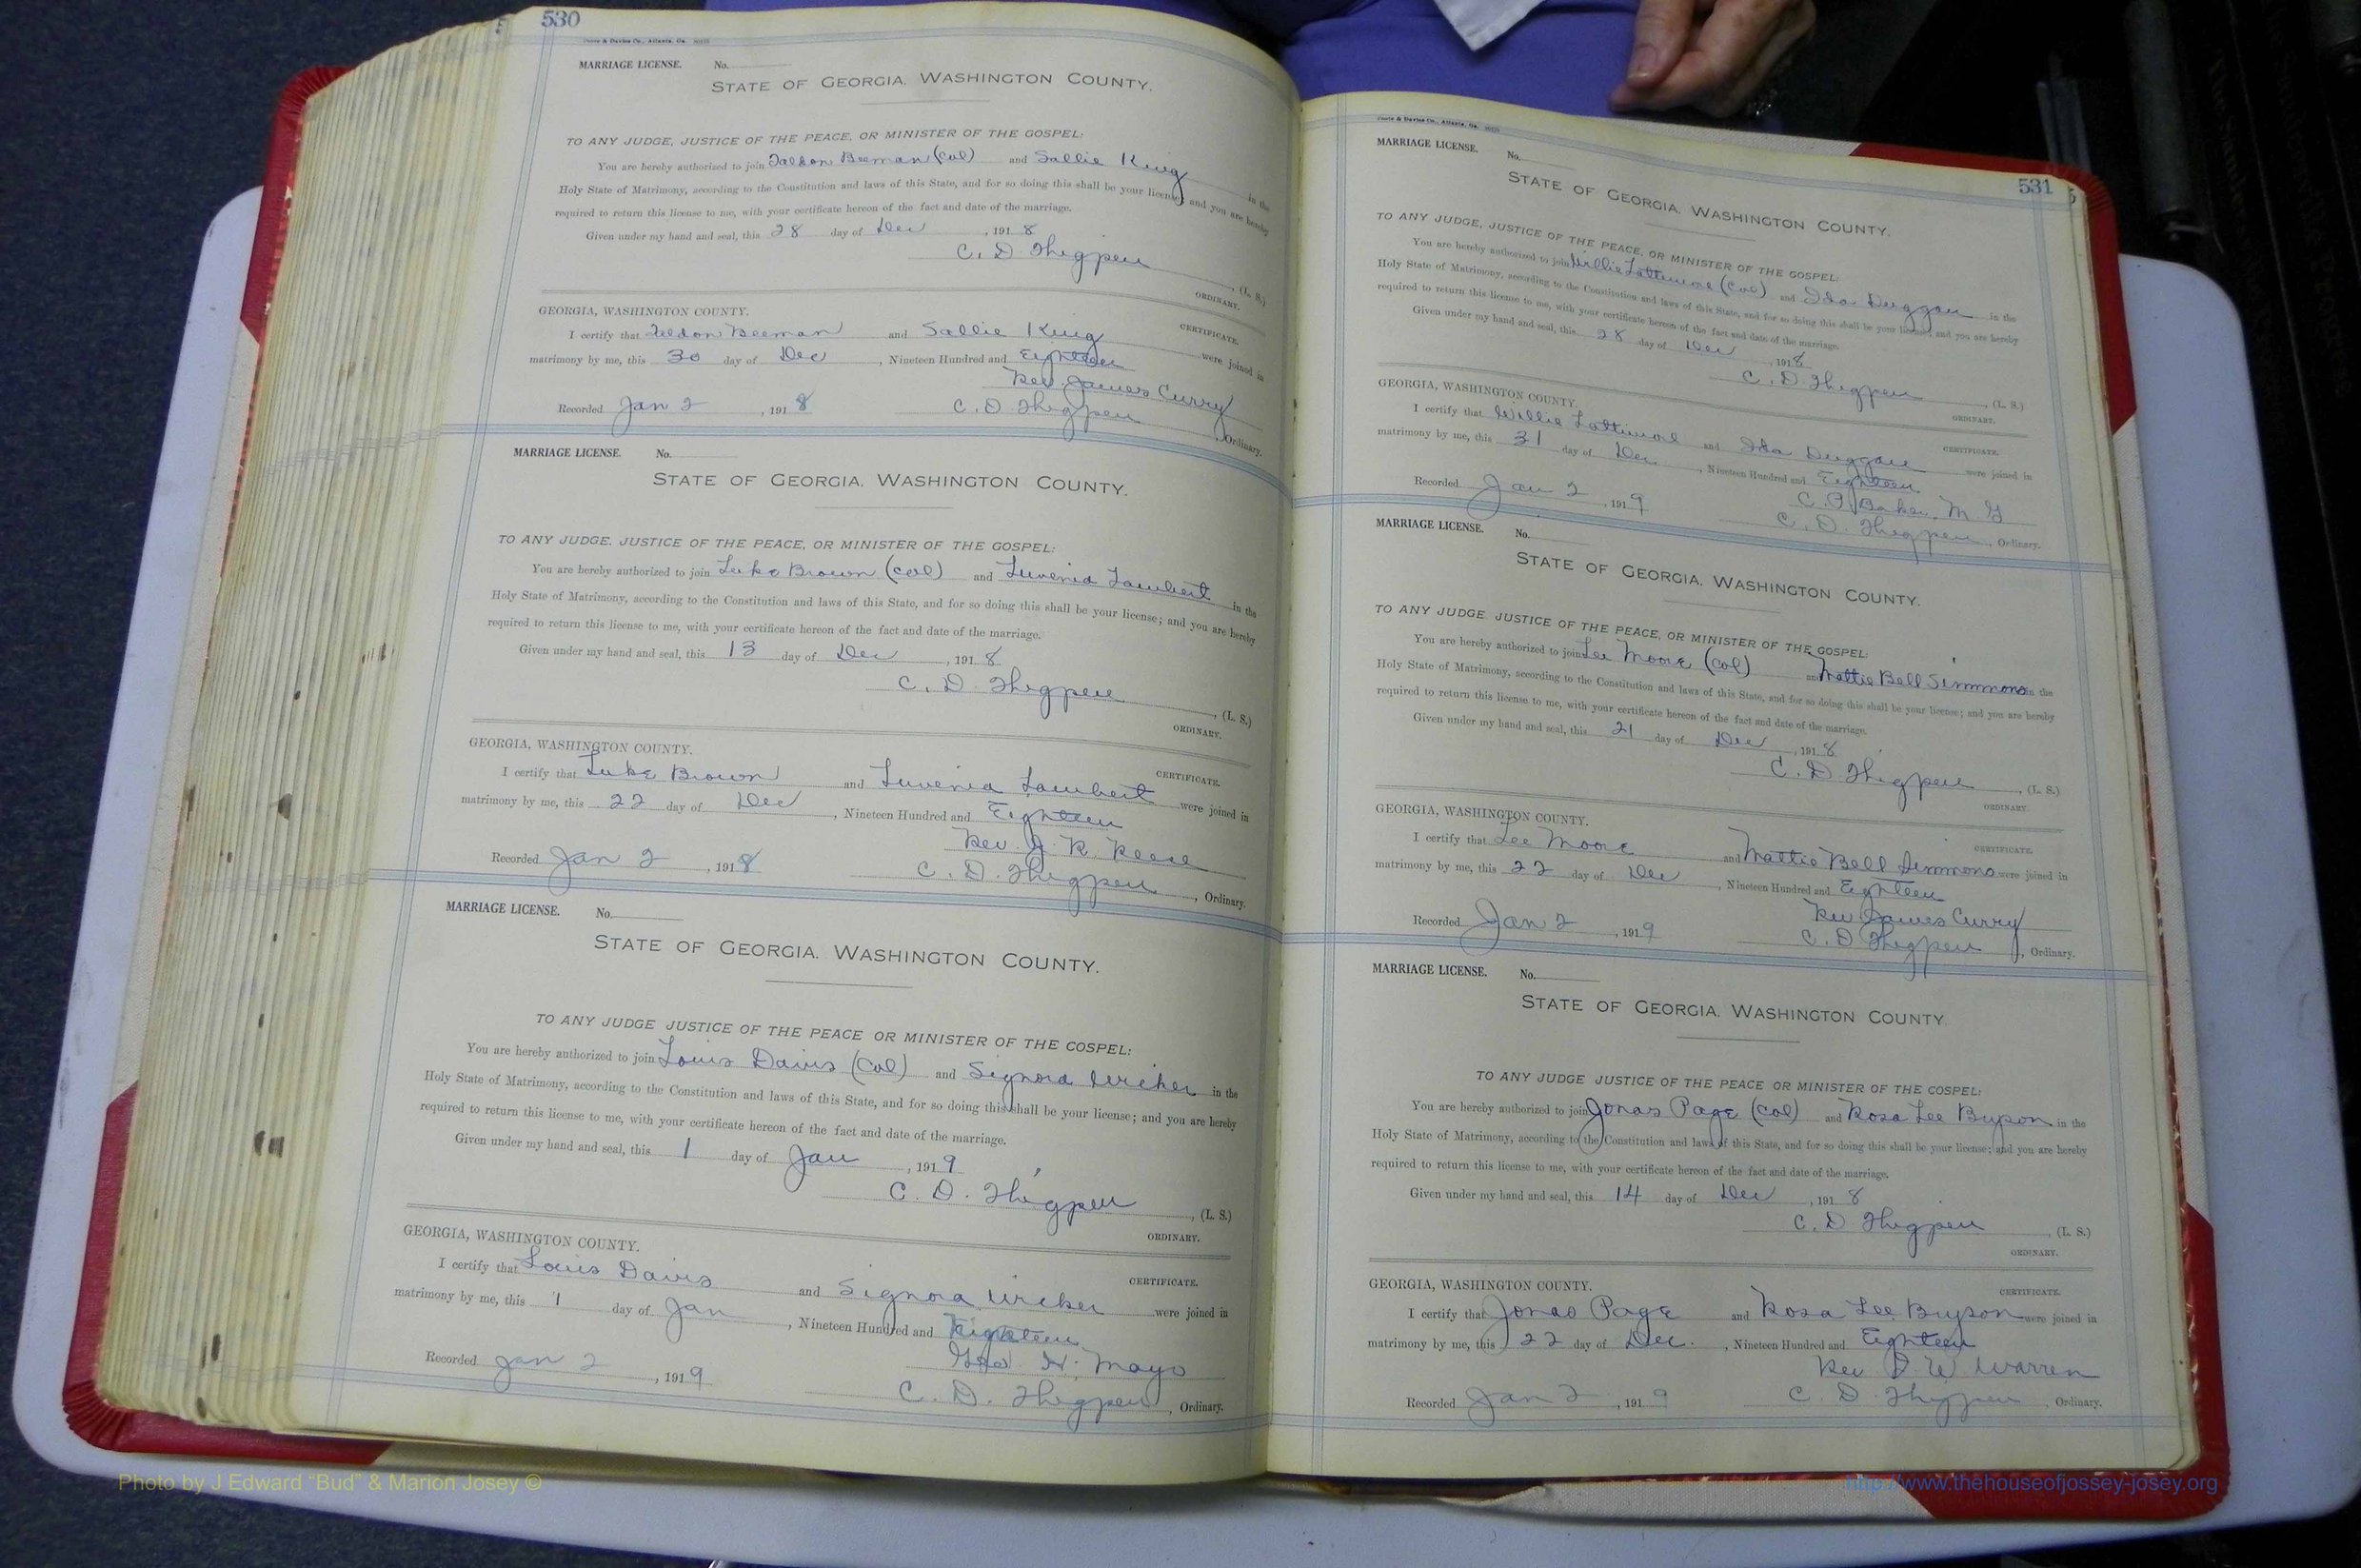 530
Foote & Davies Co., Atlanta, Ga.
MARRIAGE LICENSE. No.
STATE OF GEORGIA. WASHINGTON COUNTY.
TO ANY JUDGE, JUSTICE OF THE PEACE, OR MINISTER OF THE GOSPEL:
You are hereby authorized to join Beeman (Col) and Sallie King in the
Holy State of Matrimony, according to the Constitution and laws of this State, and for so doing this shall be your license; and you are hereby
required to return this license to me, with your certificate hereon of the fact and date of the marriage.
Given under my hand and seal, this 28 day of Dec, 1918
C. D. Thigpen, (L. S.)
ORDINARY.
GEORGIA, WASHINGTON COUNTY. CERTIFICATE.
I certify that Beeman and Sallie King were joined in
matrimony by me, this 30 day of Dec, Nineteen Hundred and Eighteen
Rev. James Curry
Recorded Jan 2, 1918 C. D. Thigpen, Ordinary.
MARRIAGE LICENSE. No.
STATE OF GEORGIA. WASHINGTON COUNTY.
TO ANY JUDGE. JUSTICE OF THE PEACE, OR MINISTER OF THE GOSPEL:
You are hereby authorized to join Luke Brown (Col) and Luvenia Lambert in the
Holy State of Matrimony, according to the Constitution and laws of this State, and for so doing this shall be your license; and you are hereby
required to return this license to me, with your certificate hereon of the fact and date of the marriage.
Given under my hand and seal, this 13 day of Dec, 1918
C. D. Thigpen, (L. S.)
ORDINARY.
GEORGIA, WASHINGTON COUNTY. CERTIFICATE.
I certify that Luke Brown and Luvenia Lambert were joined in
matrimony by me, this 22 day of Dec, Nineteen Hundred and Eighteen
Rev. J. R. Reese
Recorded Jan 2, 1918 C. D. Thigpen, Ordinary.
MARRIAGE LICENSE. No.
STATE OF GEORGIA. WASHINGTON COUNTY.
TO ANY JUDGE JUSTICE OF THE PEACE OR MINISTER OF THE COSPEL:
You are hereby authorized to join Louis Davis (Col) and Signora Wicker in the
Holy State of Matrimony, according to the Constitution and laws of this State, and for so doing this shall be your license; and you are hereby
required to return this license to me, with your certificate hereon of the fact and date of the marriage.
Given under my hand and seal, this 1 day of Jan, 1919
C. D. Thigpen, (L. S.)
ORDINARY.
GEORGIA, WASHINGTON COUNTY. CERTIFICATE.
I certify that Louis Davis and Signora Wicker were joined in
matrimony by me, this 1 day of Jan, Nineteen Hundred and Eighteen
Geo. H. Mayo
Recorded Jan 2, 1919 C. D. Thigpen, Ordinary.
531
Foote & Davies Co., Atlanta, Ga.
MARRIAGE LICENSE. No.
STATE OF GEORGIA. WASHINGTON COUNTY.
TO ANY JUDGE, JUSTICE OF THE PEACE, OR MINISTER OF THE GOSPEL:
You are hereby authorized to join Willie Lattimore (Col) and Ida Duggan in the
Holy State of Matrimony, according to the Constitution and laws of this State, and for so doing this shall be your license; and you are hereby
required to return this license to me, with your certificate hereon of the fact and date of the marriage.
Given under my hand and seal, this 28 day of Dec, 1918
C. D. Thigpen, (L. S.)
ORDINARY.
GEORGIA, WASHINGTON COUNTY. CERTIFICATE.
I certify that Willie Lattimore and Ida Duggan were joined in
matrimony by me, this 31 day of Dec, Nineteen Hundred and Eighteen
C. P. Baker, M G
Recorded Jan 2, 1919 C. D. Thigpen, Ordinary.
MARRIAGE LICENSE. No.
STATE OF GEORGIA. WASHINGTON COUNTY.
TO ANY JUDGE. JUSTICE OF THE PEACE, OR MINISTER OF THE GOSPEL:
You are hereby authorized to join Lee Moore (Col) and Mattie Bell Simmons in the
Holy State of Matrimony, according to the Constitution and laws of this State, and for so doing this shall be your license; and you are hereby
required to return this license to me, with your certificate hereon of the fact and date of the marriage.
Given under my hand and seal, this 21 day of Dec, 1918
C. D. Thigpen, (L. S.)
ORDINARY.
GEORGIA, WASHINGTON COUNTY. CERTIFICATE.
I certify that Lee Moore and Mattie Bell Simmons were joined in
matrimony by me, this 22 day of Dec, Nineteen Hundred and Eighteen
Rev James Curry
Recorded Jan 2, 1919 C. D. Thigpen, Ordinary.
MARRIAGE LICENSE. No.
STATE OF GEORGIA. WASHINGTON COUNTY
TO ANY JUDGE JUSTICE OF THE PEACE OR MINISTER OF THE COSPEL:
You are hereby authorized to join Jonas Page (Col) and Rosa Lee Bryson in the
Holy State of Matrimony, according to the Constitution and laws of this State, and for so doing this shall be your license; and you are hereby
required to return this license to me, with your certificate hereon of the fact and date of the marriage.
Given under my hand and seal, this 14 day of Dec, 1918
C. D Thigpen, (L. S.)
ORDINARY.
GEORGIA, WASHINGTON COUNTY. CERTIFICATE.
I certify that Jonas Page and Rosa Lee Bryson were joined in
matrimony by me, this 22 day of Dec., Nineteen Hundred and Eighteen
Rev D. W. Warren
Recorded Jan 2, 1919 C. D. Thigpen, Ordinary.
Photo by J Edward “Bud” & Marion Josey ©
http://www.thehouseofjossey-josey.org